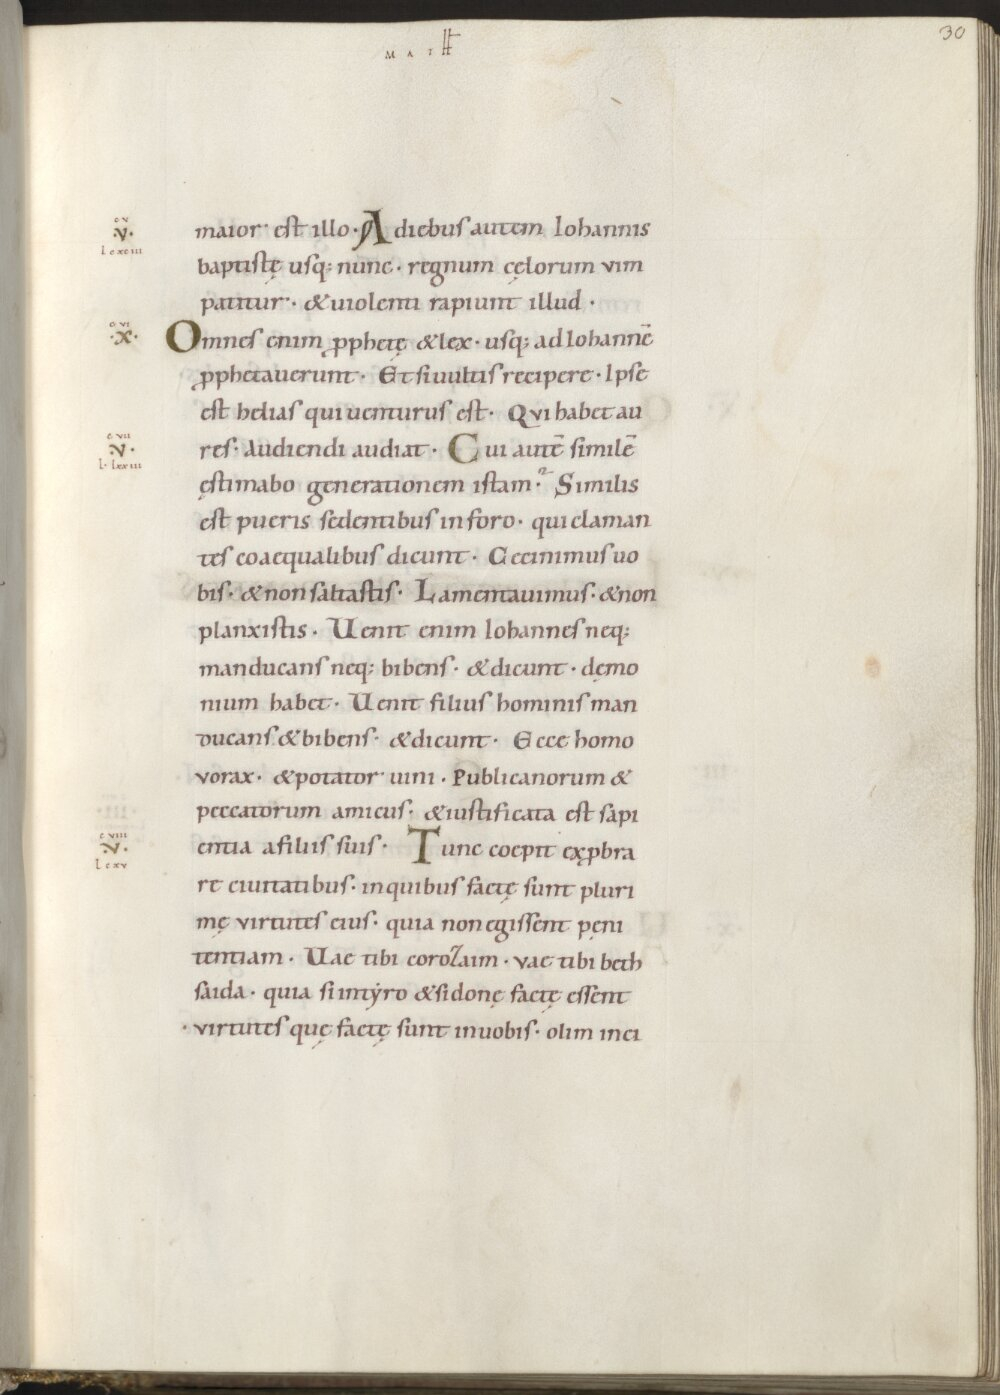 MATH
30
maior est illo · A diebus autem Iohannis
baptistę usq; nunc · regnum cęlorum vim
patitur · & uiolenti rapiunt illud ·
Omnes enim ꝓphetę & lex · usq; ad Iohannē
ꝓphetauerunt · Et si uultis recipere · Ipse
est helias qui uenturus est · Qui habet au
res · audiendi audiat · Cui autē similē
ęstimabo generationem istam · Similis
est pueris sedentibus in foro · qui claman
tes coaequalibus dicunt · Cecinimus uo
bis · & non saltastis · Lamentauimus · & non
planxistis · Uenit enim Iohannes neq;
manducans neq; bibens · & dicunt · dęmo
nium habet · Uenit filius hominis man
ducans & bibens · & dicunt · Ecce homo
vorax · & potator uini · Publicanorum &
peccatorum amicus · & iustificata est sapi
entia a filiis suis · Tunc coepit exꝓbra
re ciuitatibus · in quibus factę sunt pluri
mę virtutes eius · quia non egissent pęni
tentiam · Uae tibi corozaim · vae tibi beth
saida · quia si in tẏro & sidonę factę essent
· virtutes quę factę sunt in uobis · olim in ci
c v
· v ·
L c x c iii
c vi
· x ·
c vii
· v ·
L · lxxiii
c viii
· v ·
L c x v